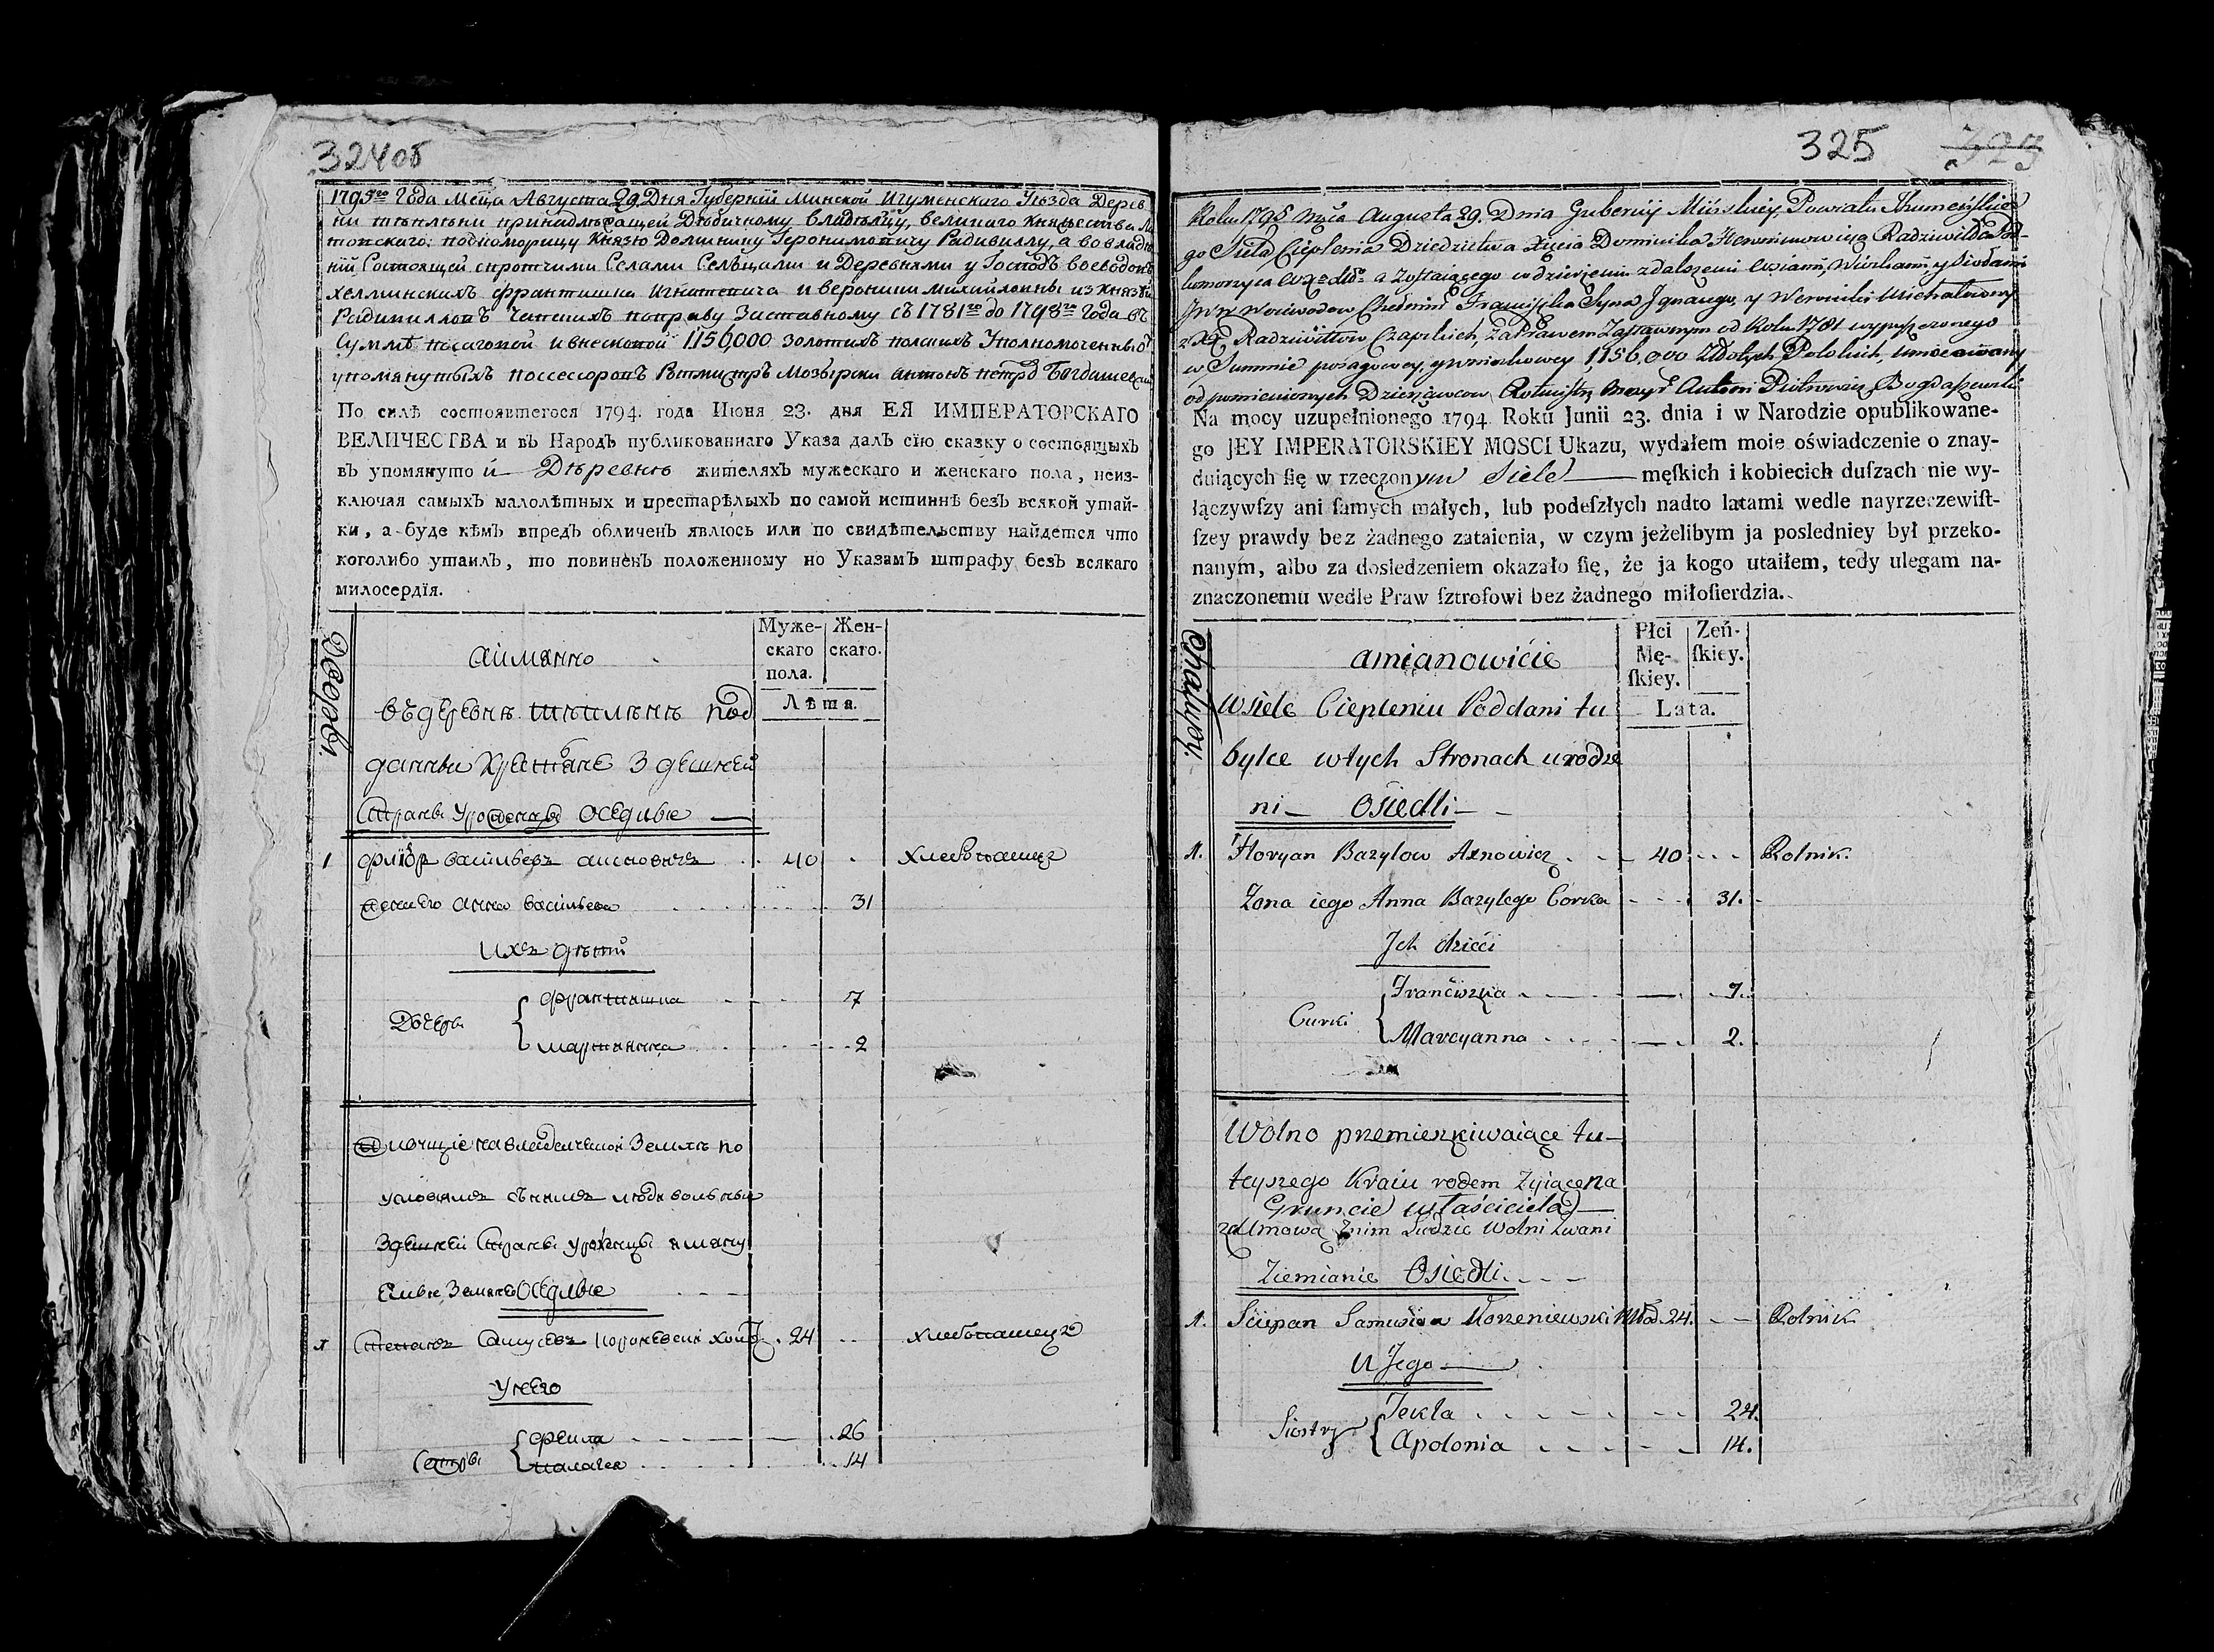 324об
1795го Года Меца Августа 29 Дня Губернии Минской Игуменского Уезда Дерев
ни принадлежащей Дедичному владельцу, великого Княжества Ли
товского подкоморицу Князю Доминику Геронимовичу Радивиллу, а во владе
нии Состоящей с протчими Селами Сельцами и Деревнями у Господ воеводов
хелминских Франтишка Игнатевича и Вероники Михайловны из Князей
Радивиллов Чапских по праву Заставному с 1781го до 1798го Года в
Сумме посаговой и вносковой 1156,000 золотих полских Уполномоченный от
упомянутых поссессоров Ротмистр Мозырски Антон Петров Богдашевски
По силѣ состоявшегося 1794. года Июня 23. дня ЕЯ ИМПЕРАТОРСКАГО
ВЕЛИЧЕСТВА и въ Народъ публикованнаго Указа далъ сїю сказку о состоящихъ
въ упомянуто й Деревне жителяхъ мужескаго и женскаго пола, неиз-
ключая самыхъ малолѣтныхъ и престарѣлыхъ по самой истиннѣ безъ всякой утай-
ки, а буде кѣмъ впредъ обличенъ явлюсь или по свидѣтельству найдется что
коголибо утаилъ, то повиненъ положенному по Указамъ штрафу безъ всякаго
милосердїя.
Дворы.
аимянно
Муже-
скаго
пола.
Жен-
скаго.
Лѣта.
въ деревне под
данные Хрестяне Здешней
Страны Уроженцы Оседлые
1 Флиор васильев ахнович 40 хлебопашец
жена его анна васильева 31
Их дети
Дочеры
франтишка 7
марцианна 2
Живущие на владелческой Земли по
условиям с ним люди вольные
Здешней Страны уроженцы имяну
емые Земяне Оседлые
1 Степан Самусев Корженевски холост 24 хлебопашец
У него
Сестры
фекла 26
палагея 14
325
Roku 1795 Mca Augusta 29. Dnia Gubernij Minskiey, Powiatu Ihumenskie
go Siela Cieplenia Dziedzictwa Xięcia Dominika Hieronimowicza Radziwiłła Pod
komorzyca a zostaiącego w dzierżeniu z dalszemi Wsiami, y Siołami
JWW Woiewodow Chełmins Franciszka Syna Ignacego y Weroniki Michałowny
z XX. Radziwiłłow Czapskich, za Prawem Zastawnym od Roku 1781 wypuszczonego
w Summie posagowey, y wnioskowey 1,156,000 Złotych Polskich, umocowany
od pomienionych Dzierżawcow Rotmistrz Mozyr Antoni Piotrowicz Bogdaszewski
Na mocy uzupełnionego 1794 Roku Junii 23. dnia i w Narodzie opublikowane-
go JEY IMPERATORSKIEY MOSCI Ukazu, wydałem moie oświadczenie o znay-
duiących ſię w rzeczon ym Siele męſkich i kobiecich duſzach nie wy-
łączywſzy ani ſamych małych, lub podeſzłych nadto latami wedle nayrzeczewiſt-
ſzey prawdy bez żadnego zataienia, w czym jeżelibym ja posledniey był przeko-
nanym, albo za dosledzeniem okazało ſię, że ja kogo utaiłem, tedy ulegam na-
znaczonemu wedle Praw ſztrofowi bez żadnego miłoſierdzia.
Chałupy.
amianowicie
Płci
Mę-
ſkiey.
Zeń-
ſkiey.
Lata.
W siele Ciepleniu Poddani tu
bylce w tych Stronach urodze
ni Osiedli
1. Floryan Bazylow Axnowicz 40 Rolnik.
Zona iego Anna Bazylego Corka 31.
Ich dzieci
Curki
Franciszka 7.
Marcyanna 2.
Wolno przemieszkiwaiące tu-
teyszego Kraiu rodem Zyiące na
Gruncie właściciela
za Umową z nim Ludzie Wolni Zwani
Ziemianie Osiedli
1. Sciepan Samusiow Korzeniewski Młod 24. Rolnik
U Jego
Siostry
Tekla 24.
Apolonia 14.